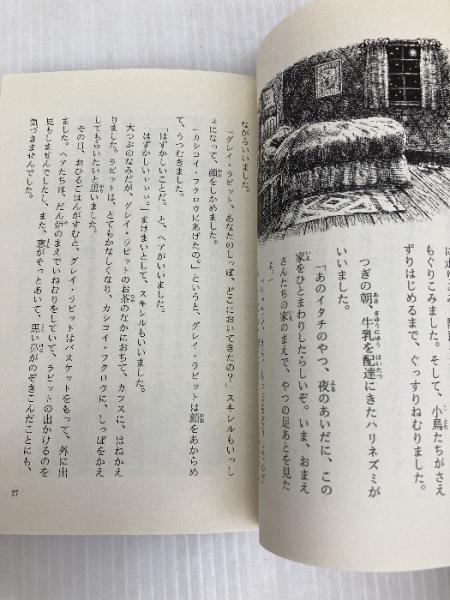 もぐりこみました。そして、小鳥たちがさえ
ずりはじめるまで、ぐっすりねむりました。
つぎの朝、牛乳を配達にきたハリネズミが
いいました。
「あのイタチのやつ、夜のあいだに、この
家をひとまわりしたらしいぞ。いま、おまえ
さんたちの家のまえで、やつの足あとを見た
よ。」
ながらいいました。
「グレイ・ラビット、あなたのしっぽ、どこにおいてきたの？」スキレルもいっし
ょになって、顔をしかめました。
「カシコイ・フクロウにあげたの。」というと、グレイ・ラビットは顔をあからめ
て、うつむきました。
「はずかしいことだ。」と、ヘアがいいました。
「はずかしいィィィ。」まけまいとして、スキレルもいいました。
大つぶのなみだが、グレイ・ラビットのお茶のなかにおちて、カフスに、はねかえ
りました。ラビットは、とてもかなしくなり、カシコイ・フクロウに、しっぽをかえ
してもらいたいと思いました。
その日、おひるごはんがすむと、グレイ・ラビットはバスケットをもって、外に出
ました。ヘアたちは、だん炉のまえでいねむりをしていて、ラビットの出かけるのを
見もしませんでしたし、また、窓がそっとあいて、黒い鼻がのぞきこんだことにも、
気づきませんでした。
27